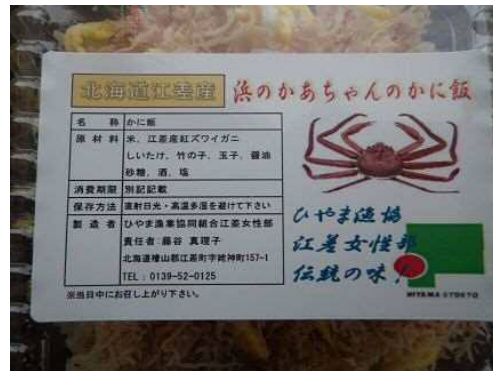 北海道江差産 浜のかあちゃんのかに飯
名称 かに飯
原材料 米、江差産紅ズワイガニ
しいたけ、竹の子、玉子、醤油
砂糖、酒、塩
消費期限 別記記載
保存方法 直射日光・高温多湿を避けて下さい
製造者 ひやま漁業協同組合江差女性部
責任者:藤谷 真理子
北海道檜山郡江差町字姥神町157-1
TEL:0139-52-0125
※当日中にお召し上がり下さい。
ひやま漁協
江差女性部
伝統の味!
HIYAMA GYOKYO